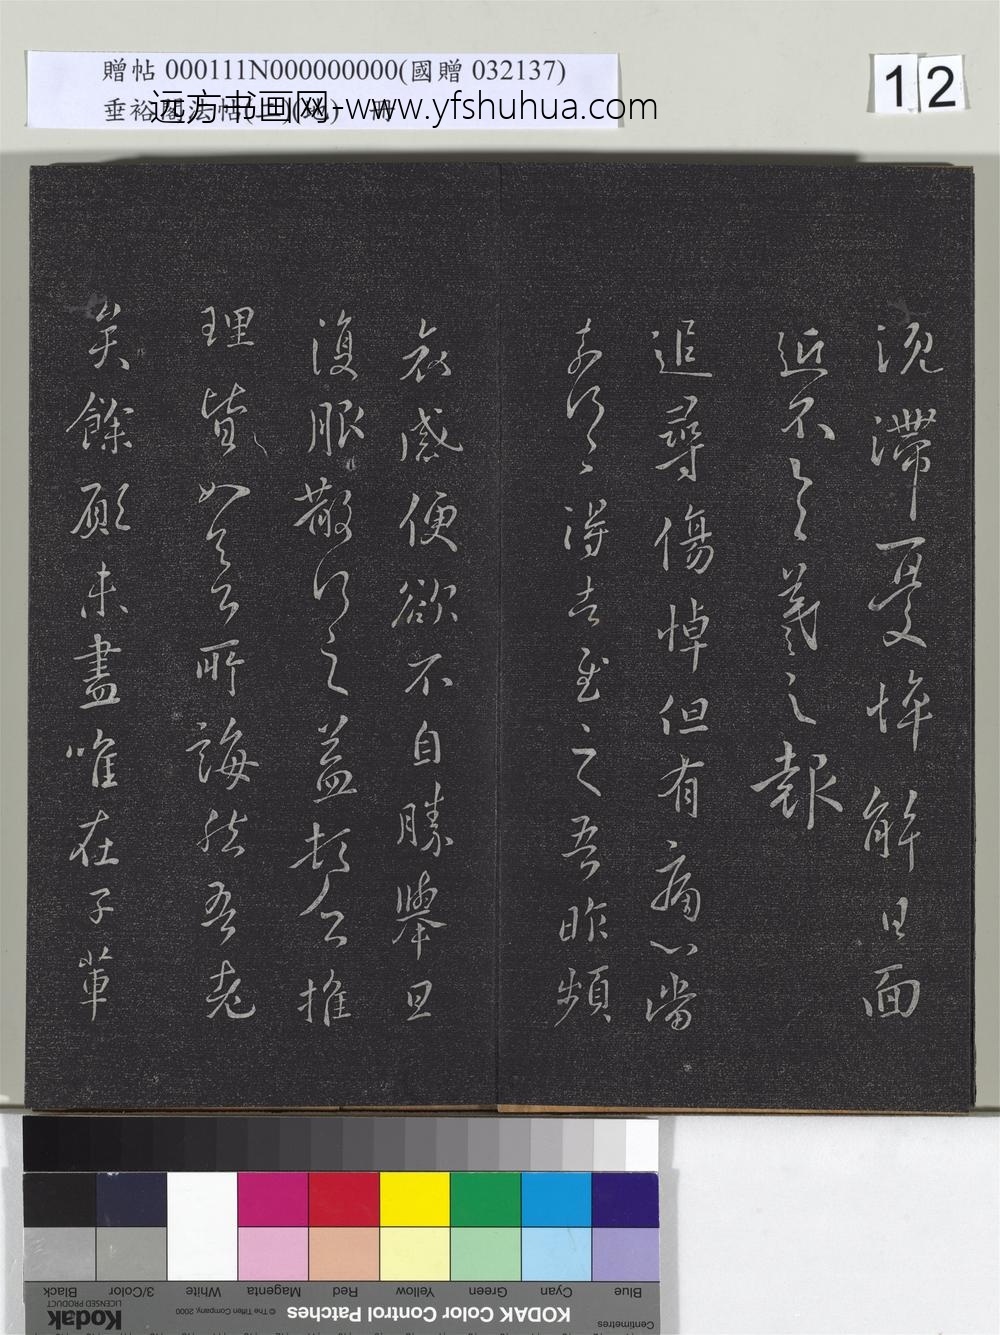 贈帖 000111N000000000(國贈 032137)
垂裕閣法帖 冊
远方书画网-www.yfshuhua.com
12
滯憂悴解日面
近不 羲之報
追尋傷悼但有痛心當
奈何〻得告慰之吾昨頻
哀感便欲不自勝舉旦
復服散行之益頓乏推
理皆如足下所誨然吾老
矣餘願未盡唯在子輩
Blue Cyan Green Yellow Red Magenta White 3/Color Black
Centimetres
KODAK Color Control Patches
© The Tiffen Company, 2000
Kodak
LICENSED PRODUCT